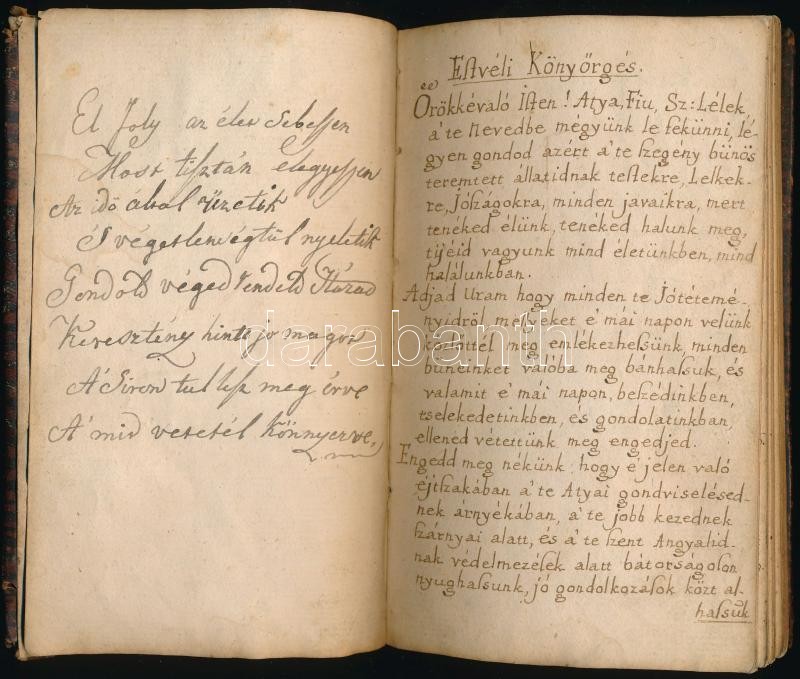 El foly az élet Sebessen
Most tisztán elegyessen
Az idö által üzetik
S végetlenségtül nyeletik
Gondold véged rendeld Házad
Keresztény hints jo magot
A' Siron tul lesz meg érve
A' mid vetetél könnyezve,
Estvéli Könyörgés.
Örökkévaló Isten! Atya, Fiu, Sz: Lélek
a' te Nevedbe mégyünk le fekünni, lé-
gyen gondod azért a' te szegény bünös
teremtett állatidnak testekre, Lelkek-
re, Jószágokra, minden javaikra, mert
tenéked élünk, tenéked halunk meg,
tijéid vagyunk mind életünkben, mind
halálunkban.
Adjad Uram hogy minden te Jótétemé-
nyidről mellyeket e' mái napon velünk
közlöttél meg emlékezhessünk, minden
büneinket valóba meg bánhassuk, és
valamit e' mái napon, beszédinkben,
tselekedetinkben, és gondolatinkban,
ellened vétettünk meg engedjed.
Engedd meg nékünk, hogy e' jelen való
éjtszakában a' te Atyai gondviselésed-
nek árnyékában, a' te jobb kezednek
szárnyai alatt, és a' te szent Angyalid-
nak védelmezések alatt bátorságoson
nyughassunk, jó gondolkozások közt al-
hassuk
darabanth